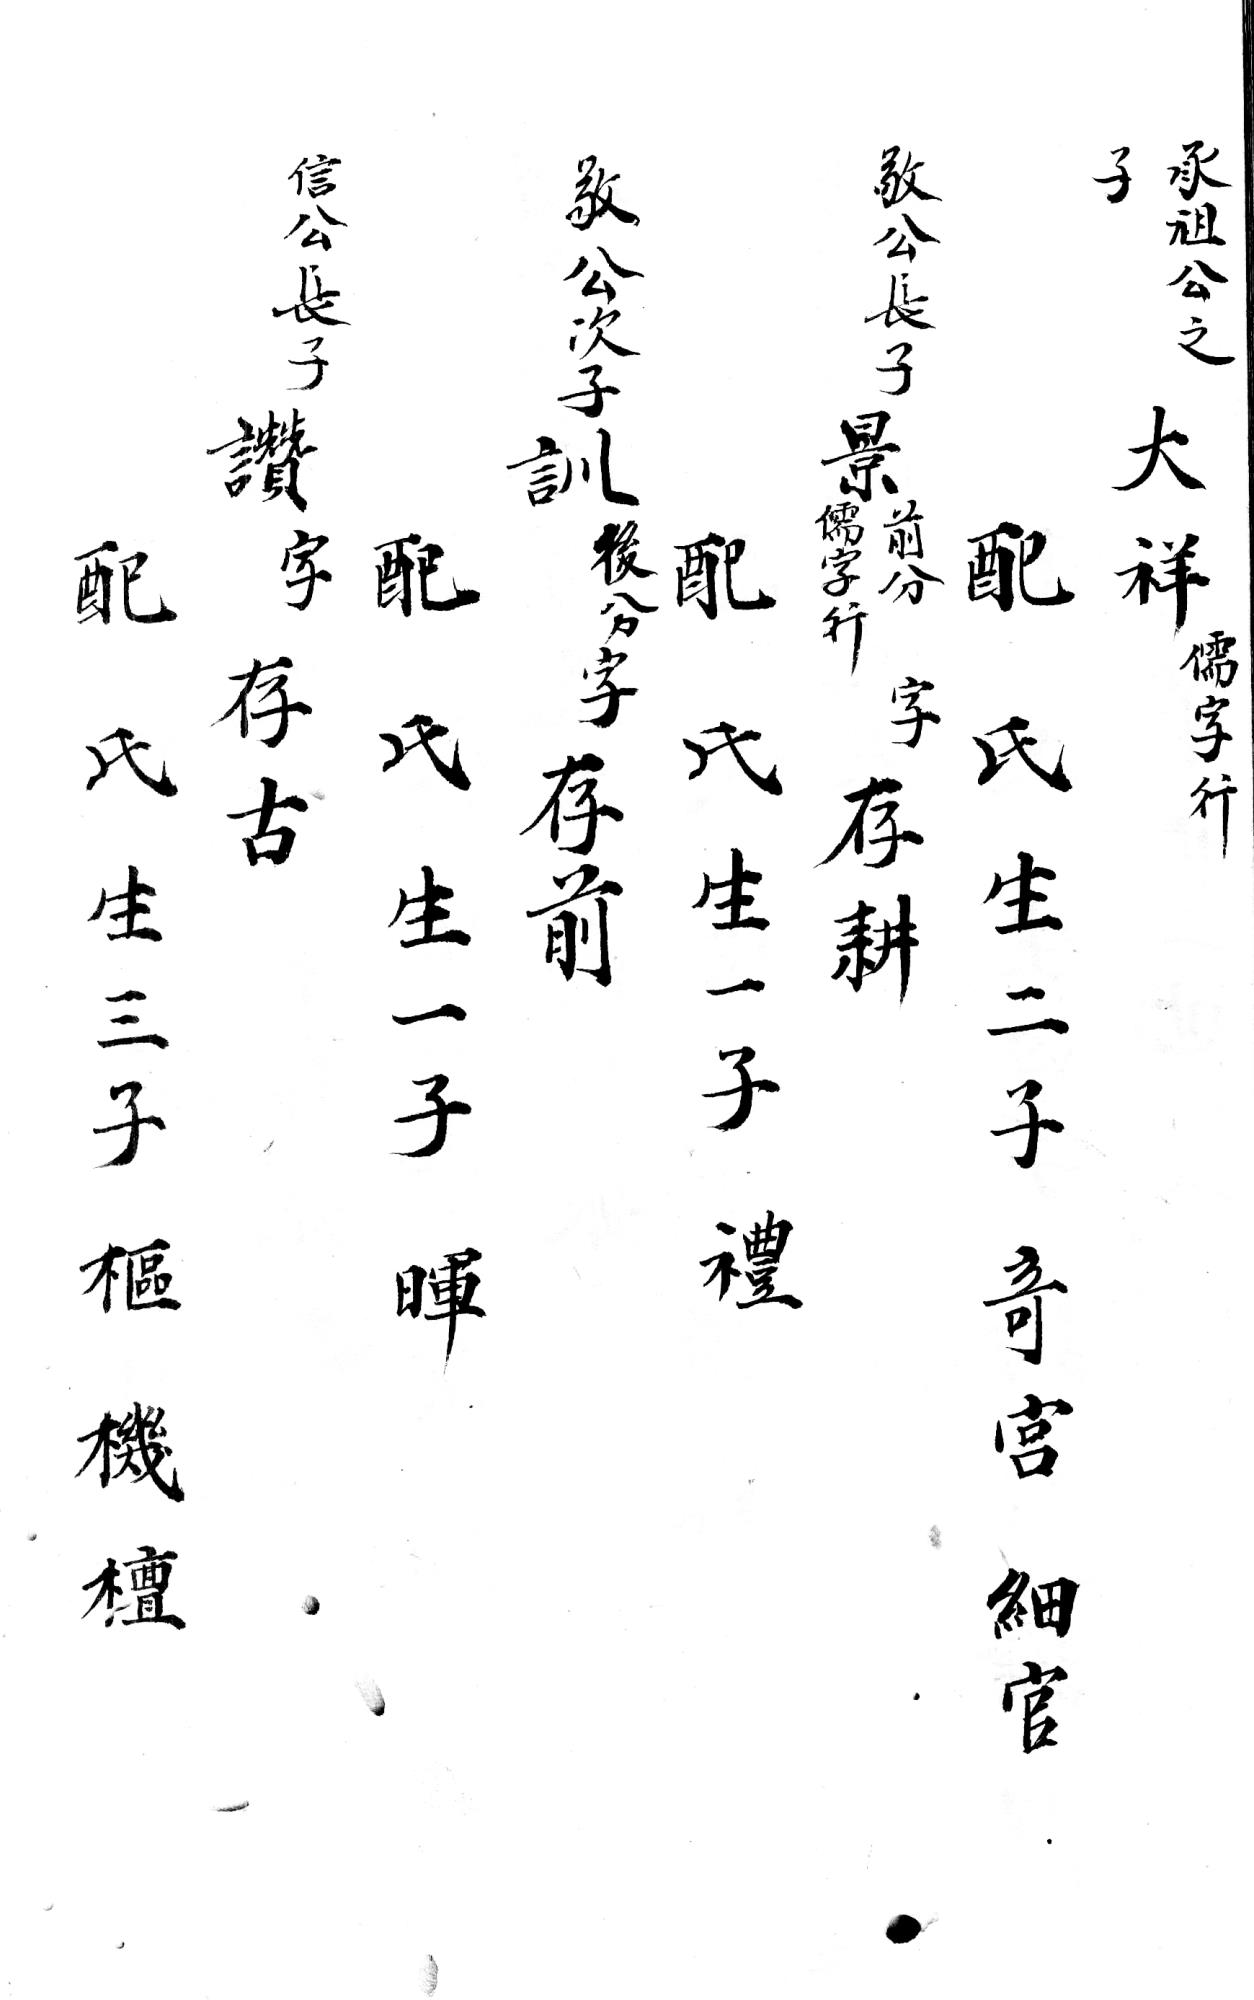 承祖公之子
大祥 儒字行
配 氏生二子 奇宮 細官
敬公長子
景 前分儒字行 字存耕
配 氏生一子 禮
敬公次子
訓 後分字存前
配 氏生一子 暉
信公長子
讚 字存古
配 氏生三子 樞 機 檀